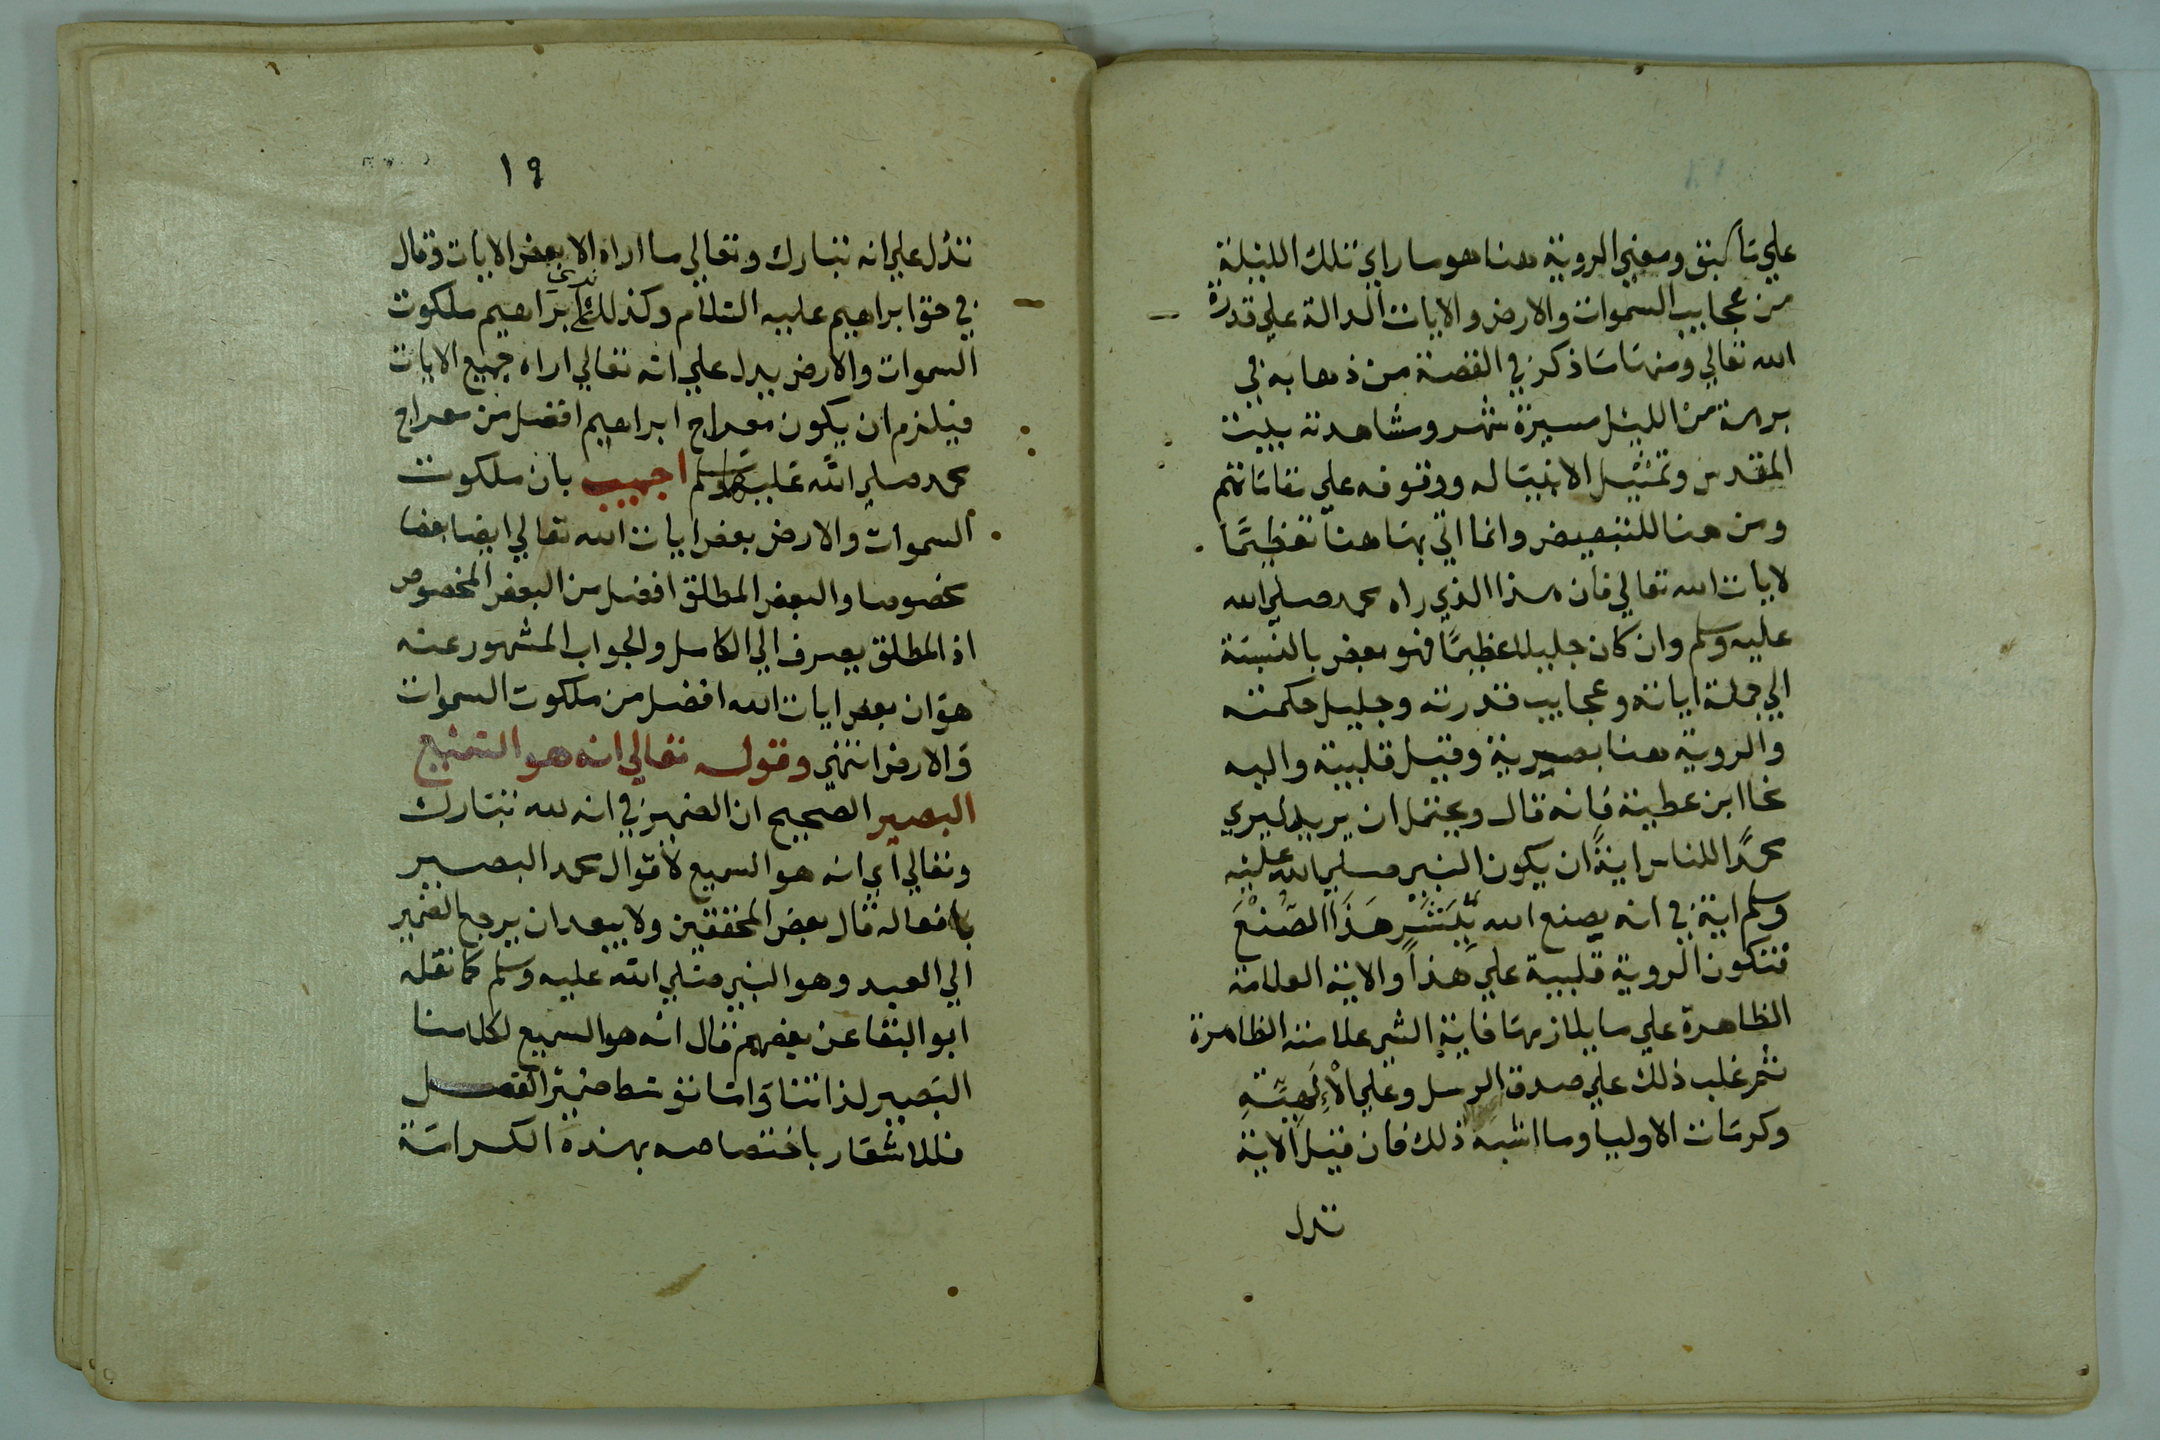 علي ما سبق ومعني الروية هنا هو ما راي تلك الليلة
من عجايب السموات والارض والايات الدالة علي قدرة
الله تعالي ومنها ما ذكر في القصة من ذهابه في
برهة من الليل مسيرة شهر ومشاهدته بيت
المقدس وتمثيل الانبيا له ووقوفه علي مقاماتهم
ومن هنا للتبعيض وانما اتي بها هنا تعظيمًا
لايات الله تعالي فان هذا الذي راه محمد صلي الله
عليه وسلم وان كان جليلا عظيمًا فهو بعض بالنسبة
الي جملة اياته وعجايب قدرته وجليل حكمته
والروية هنا بصيرية وقيل قلبية واليه
نحا ابن عطية فانه قال ويحتمل ان يريد ليري
محمدًا للناس ايةً ان يكون النبي صلي الله عليه
وسلم اية في انه يصنع الله ببشرٍ هَذَا الصُنْعَ
فتكون الروية قلبية علي هذا والاية العلامة
الظاهرة علي ما يلازمها فاية الشي علامته الظاهرة
ثم غلب ذلك علي صدق الرسل وعلي الْإلَهِيَّةِ
وكرمات الاوليا وما اشبه ذلك فان قيل الاية
تدل
١٩
تدل علي انه تبارك وتعالي ما اراه الا بعض الايات وقال
في حق ابراهيم عليه السلام وكذلك نري ابراهيم ملكوت
السموات والارض يدل علي انه تعالي اراه جميع الايات
فيلزم ان يكون معراج ابراهيم افضل من معراج
محمد صلي الله عليه وسلم اجيب بان ملكوت
السموات والارض بعض ايات الله تعالي ايضا بعضا
مخصوصا والبعض المطلق افضل من البعض المخصوص
اذ المطلق يصرف الي الكامل والجواب المشهور عنه
هو ان بعض ايات الله افضل من ملكوت السموات
والارض انتهي وقوله تعالي انه هو السميع
البصير الصحيح ان الضمير في انه لله تبارك
وتعالي اي انه هو السميع لاقوال محمد البصير
بافعاله قال بعض المحققين ولا يبعد ان يرجع الضمير
الي العبد وهو النبي صلي الله عليه وسلم كما نقله
ابو البقا عن بعضهم قال انه هو السميع لكلامنا
البصير لذاتنا واما توسط ضمير الفصل
فللاشعار باختصاصه بهذه الكرامة